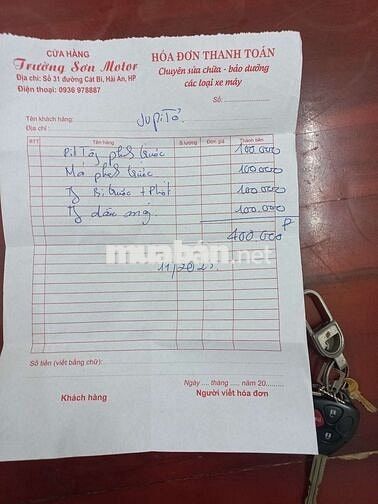 CỬA HÀNG
Trường Sơn Motor
Địa chỉ: Số 31 đường Cát Bi, Hải An, HP
Điện thoại: 0936 978887
HÓA ĐƠN THANH TOÁN
Chuyên sửa chữa - bảo dưỡng
các loại xe máy
Số:
Tên khách hàng: JupiTo
Địa chỉ:
STT Tên hàng S.lượng Đơn giá Thành tiền
phớt trước 100.000
Má phớt trước 100.000
Bi trước + phớt 100.000
dầu 100.000
400.000đ
muaban.net
11/202
Số tiền (viết bằng chữ):
Ngày .... tháng .... năm 20....
Khách hàng Người viết hóa đơn